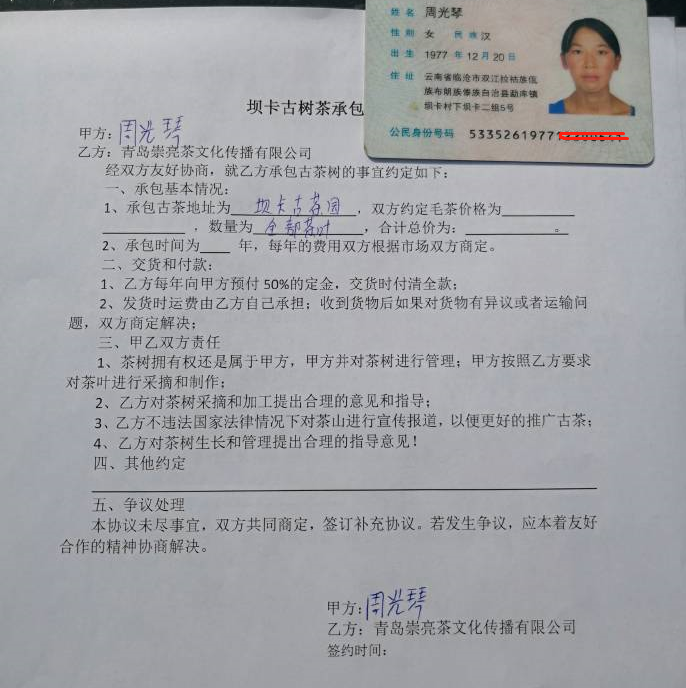 姓名 周光琴
性别 女 民族 汉
出生 1977 年 12 月 20 日
住址 云南省临沧市双江拉祜族佤
族布朗族傣族自治县勐库镇
坝卡村下坝卡二组5号
公民身份号码 53352619771
坝卡古树茶承包
甲方：周光琴
乙方：青岛崇亮茶文化传播有限公司
经双方友好协商，就乙方承包古茶树的事宜约定如下：
一、承包基本情况：
1、承包古茶地址为 坝卡古茶园 ，双方约定毛茶价格为
，数量为 全部茶叶 ，合计总价为： 。
2、承包时间为 年，每年的费用双方根据市场双方商定。
二、交货和付款：
1、乙方每年向甲方预付 50%的定金，交货时付清全款；
2、发货时运费由乙方自己承担；收到货物后如果对货物有异议或者运输问
题，双方商定解决；
三、甲乙双方责任
1、茶树拥有权还是属于甲方，甲方并对茶树进行管理；甲方按照乙方要求
对茶叶进行采摘和制作；
2、乙方对茶树采摘和加工提出合理的意见和指导；
3、乙方不违法国家法律情况下对茶山进行宣传报道，以便更好的推广古茶；
4、乙方对茶树生长和管理提出合理的指导意见！
四、其他约定
五、争议处理
本协议未尽事宜，双方共同商定，签订补充协议。若发生争议，应本着友好
合作的精神协商解决。
甲方：周光琴
乙方：青岛崇亮茶文化传播有限公司
签约时间：